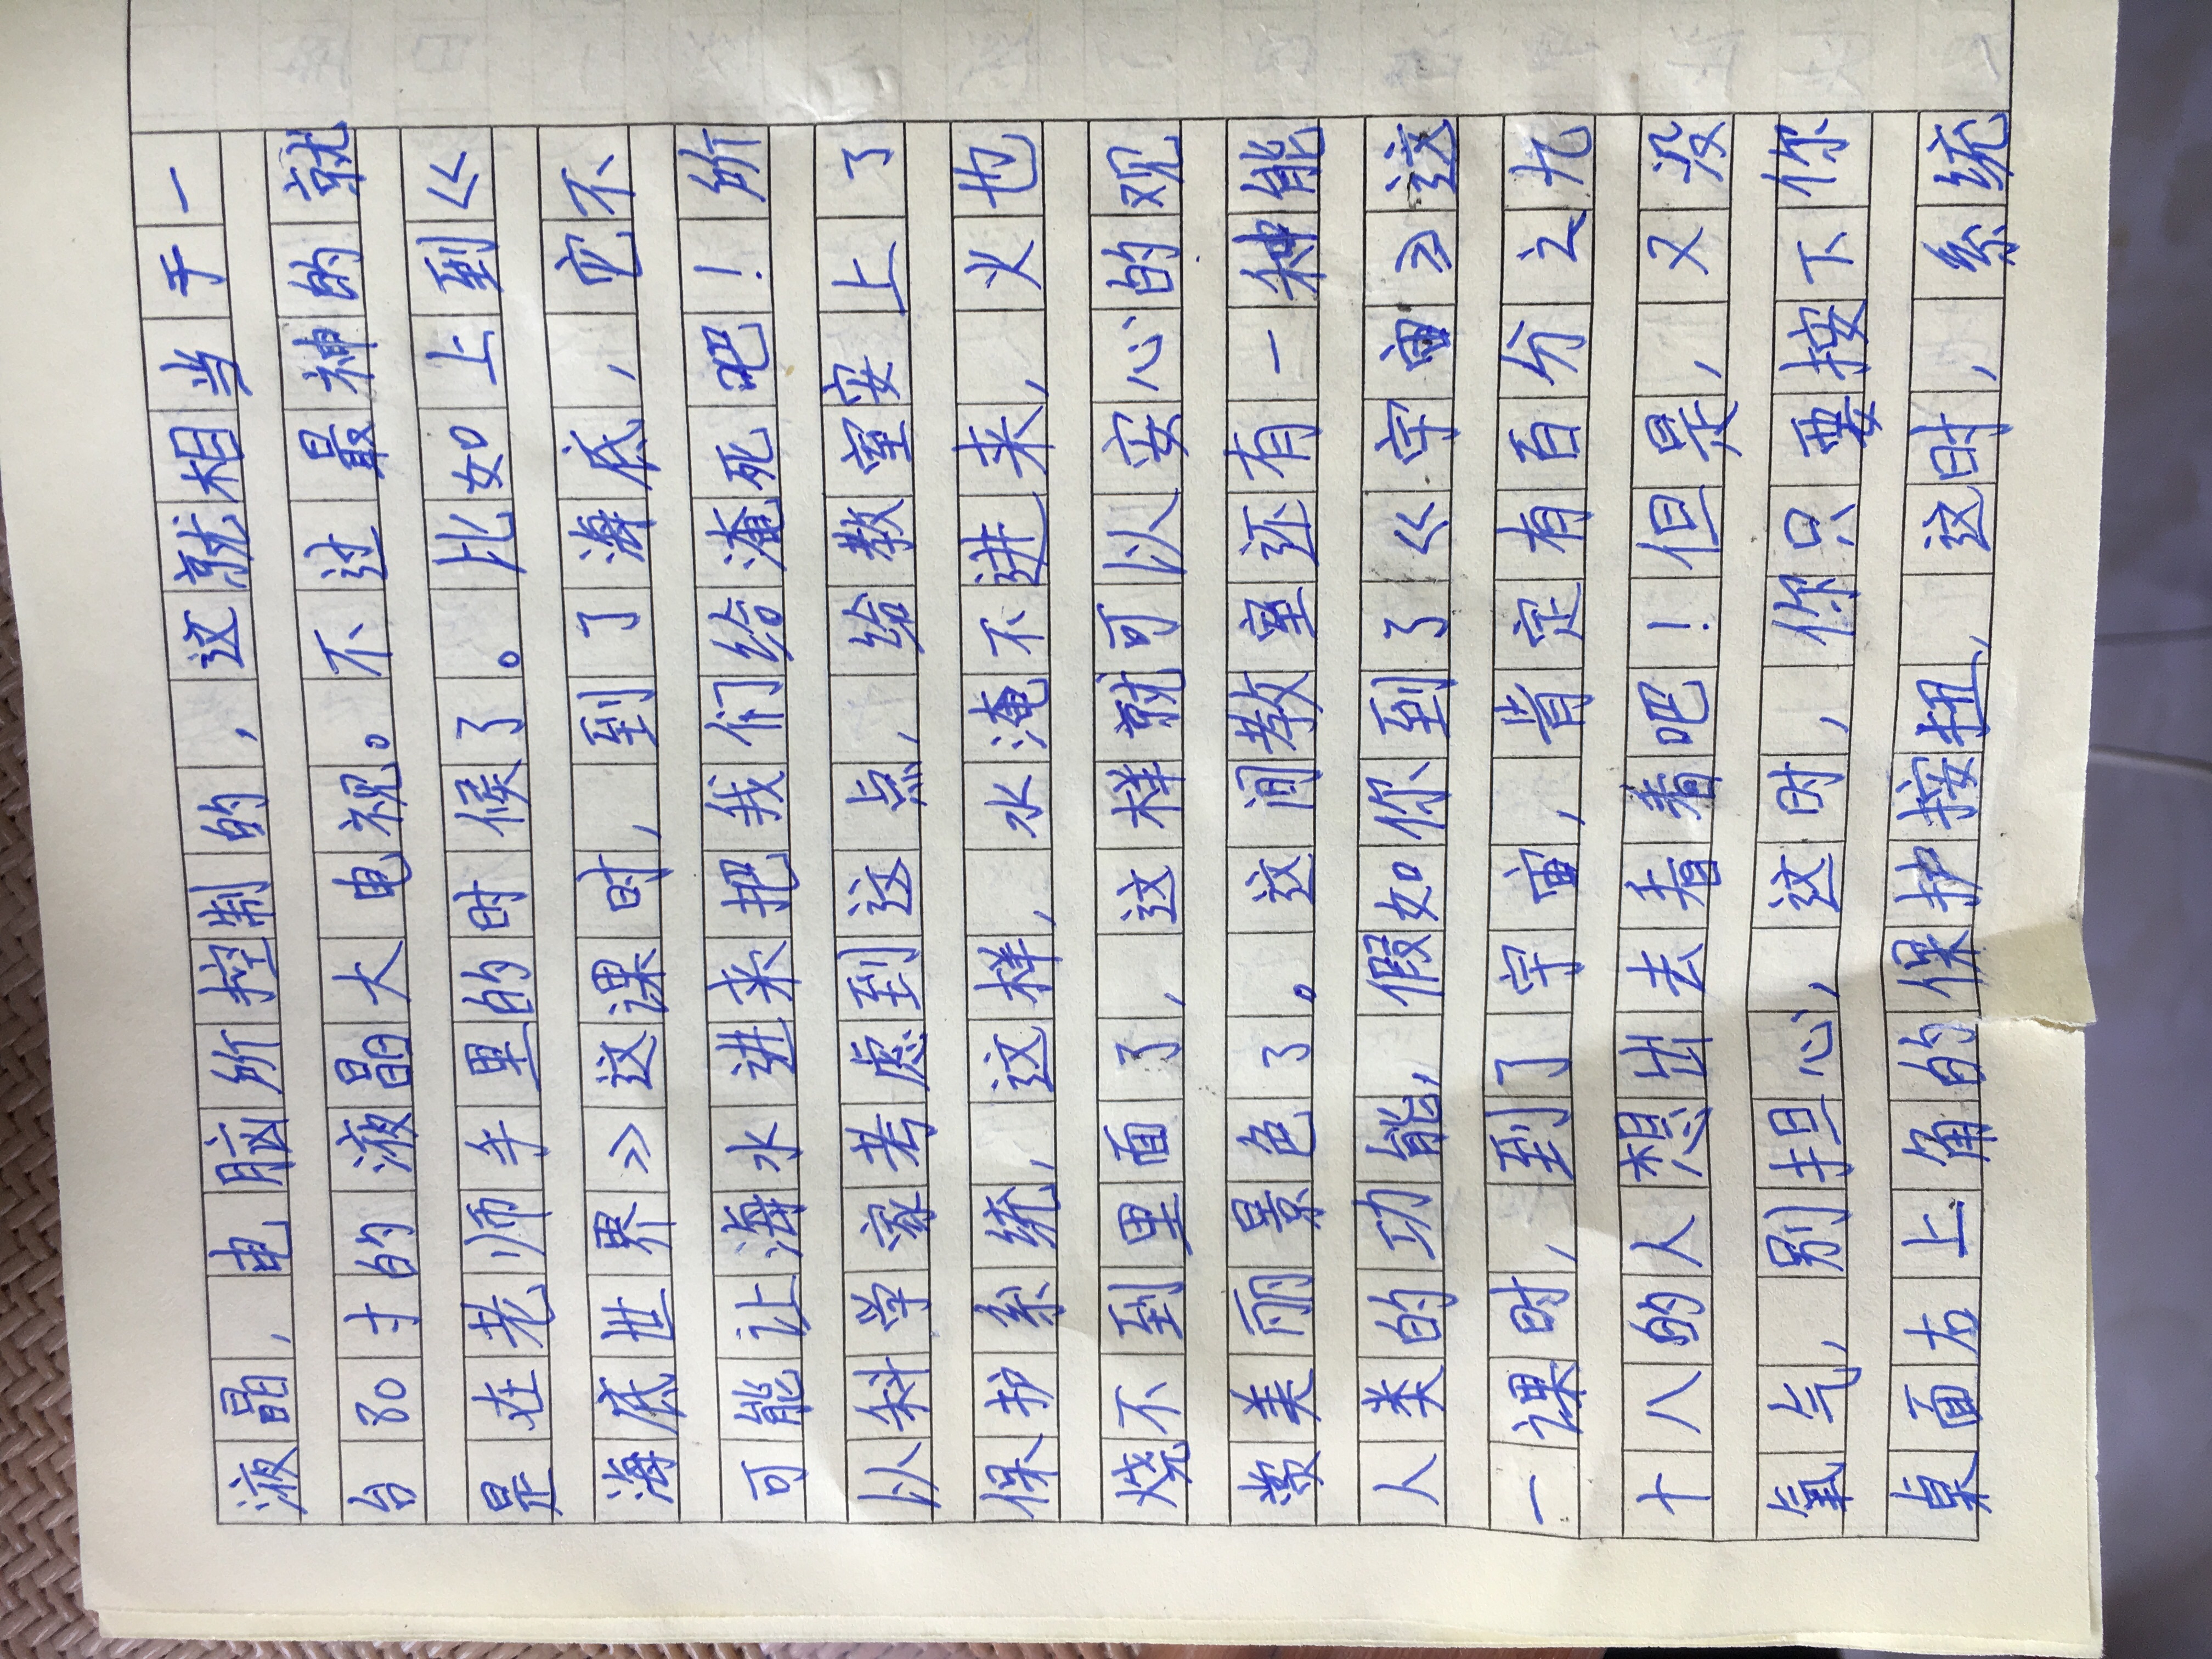 液晶，电脑所控制的，这就相当于一
台80寸的液晶大电视。不过最神的就
是在老师手里的时候了。比如上到《
海底世界》这课时，到了海底，它不
可能让海水进来把我们给淹死吧！所
以科学家考虑到这点，给教室安上了
保护系统，这样，水淹不进来，火也
烧不到里面了，这样就可以安心的观
赏美丽景色了。这间教室还有一种能
人类的功能，假如你到了《宇宙》这
一课时，到了宇宙，肯定有百分之九
十八的人想出去看看吧！但是，又没
氧气，别担心，这时，你只要按下你
桌面右上角的保护按扭，这时，系统